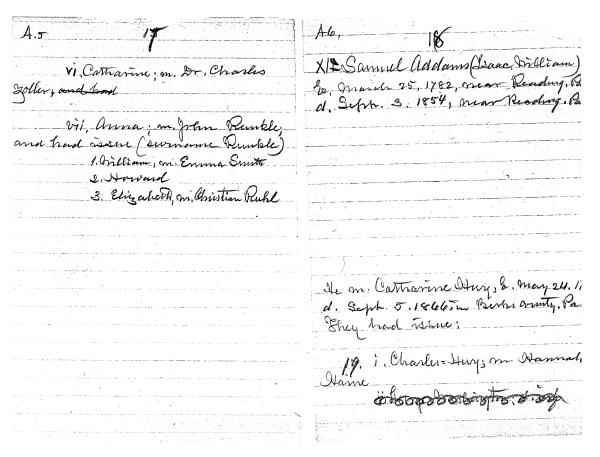 A.5
17
vi. Catharine; m. Dr. Charles
Zoller, and had
vii. Anna; m. John Runkle,
and had issue (surname Runkle)
1. William, m. Emma Smith
2. Howard
3. Elizabeth, m. Christian Ruhl
A6,
18
Samuel Addams (Isaac, William)
b. March 25, 1782, near Reading, Pa
d. Sept. 3. 1854, near Reading, Pa
He m. Catharine Huy, b. May 24. 1
d. Sept. 5. 1866 in Berks County, Pa.
They had issue:
19. i. Charles-Huy; m. Hannah
Haine